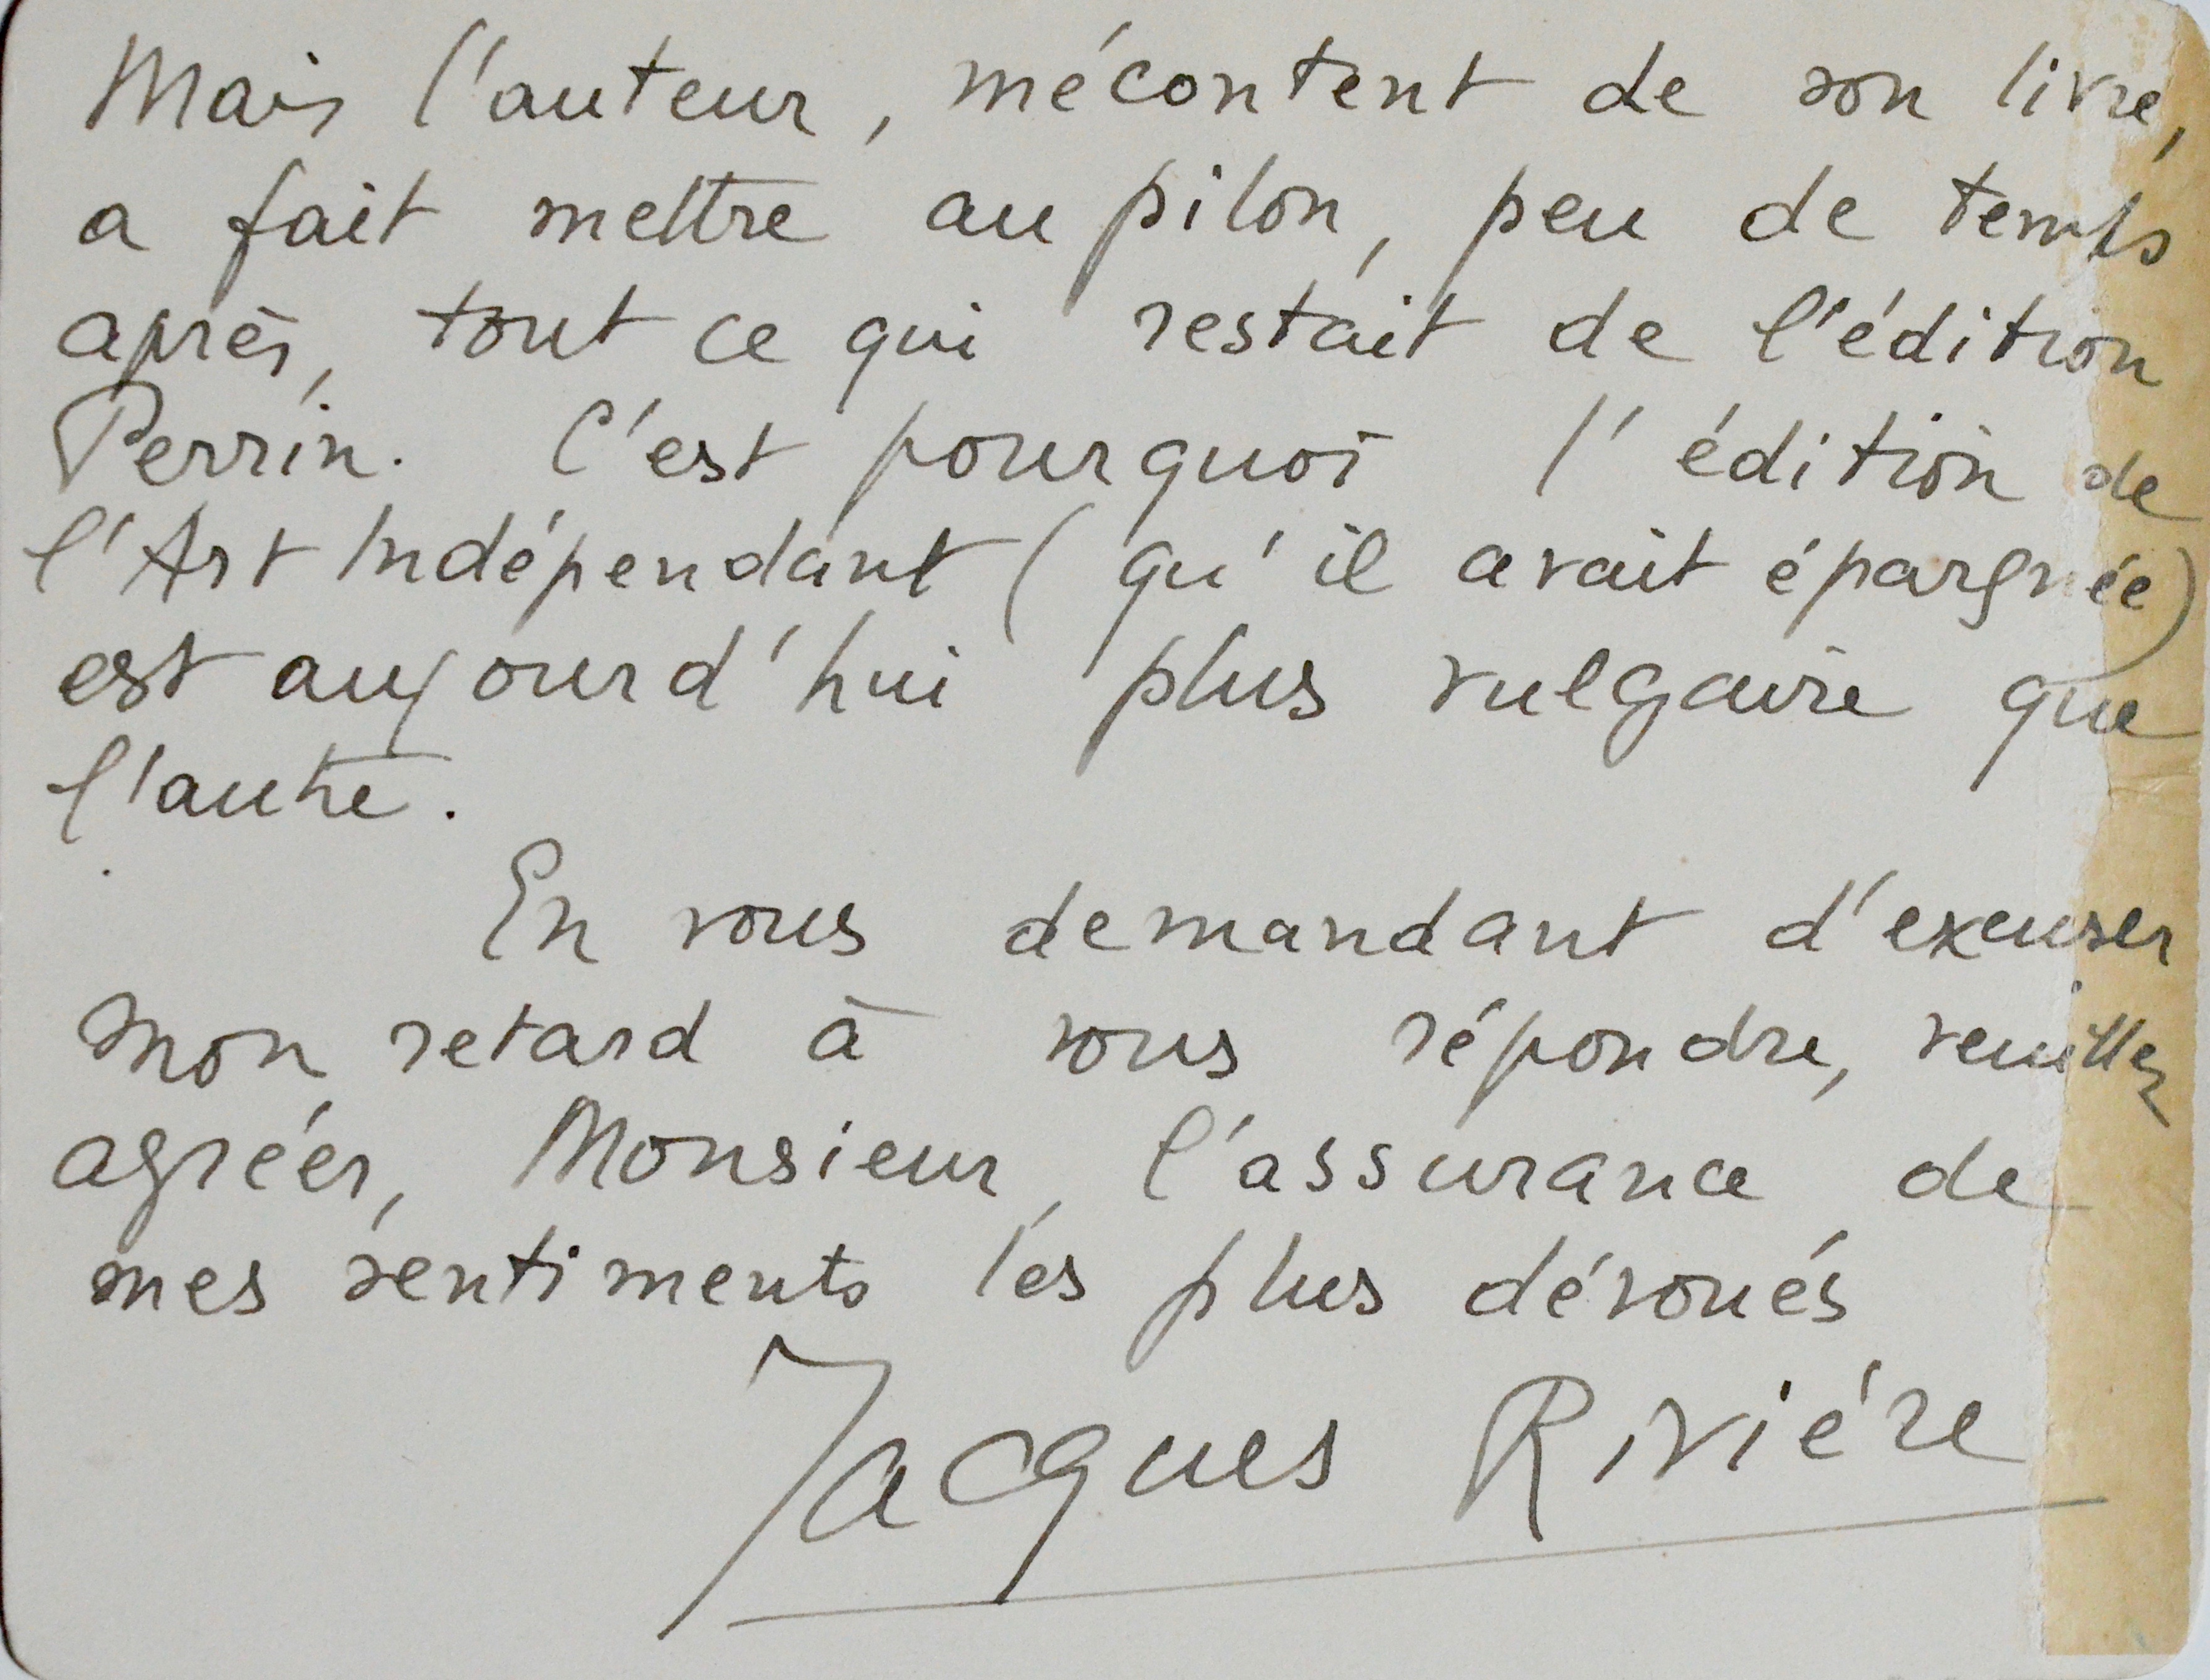 Mais l'auteur, mécontent de son livre,
a fait mettre au pilon, peu de temps
après, tout ce qui restait de l'édition
Perrin. C'est pourquoi l'édition de
l'Art Indépendant (qu'il avait épargnée)
est aujourd'hui plus vulgaire que
l'autre.
En vous demandant d'excuser
mon retard à vous répondre, veuillez
agréer, Monsieur, l'assurance de
mes sentiments les plus dévoués
Jacques Rivière